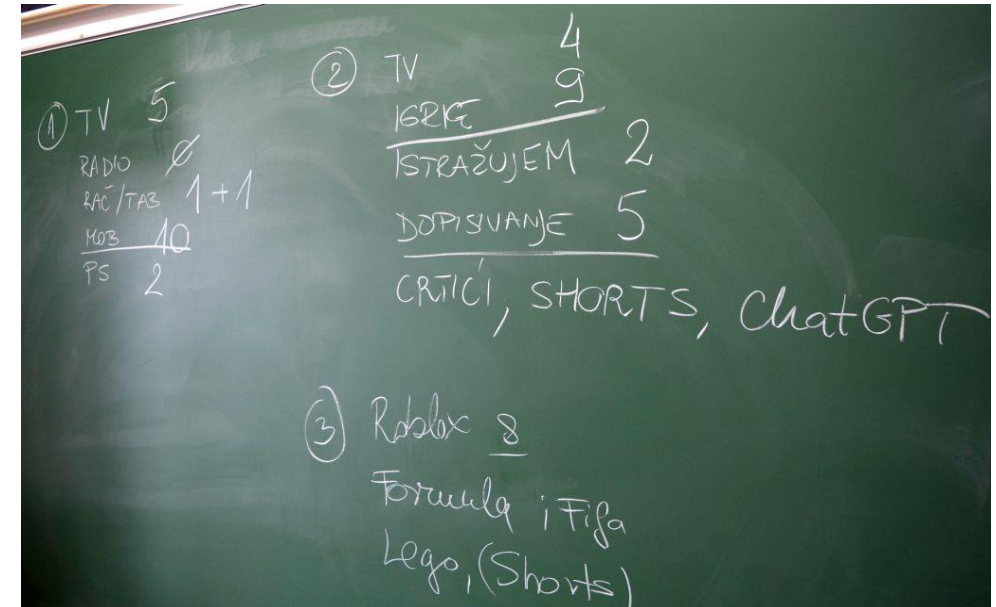 ① TV 5
RADIO Ø
RAČ/TAB 1+1
MOB 10
PS 2
② TV 4
IGRICE 9
ISTRAŽUJEM 2
DOPISIVANJE 5
CRTIĆI, SHORTS, ChatGPT
③ Roblox 8
Formula i Fifa
Lego, (Shorts)